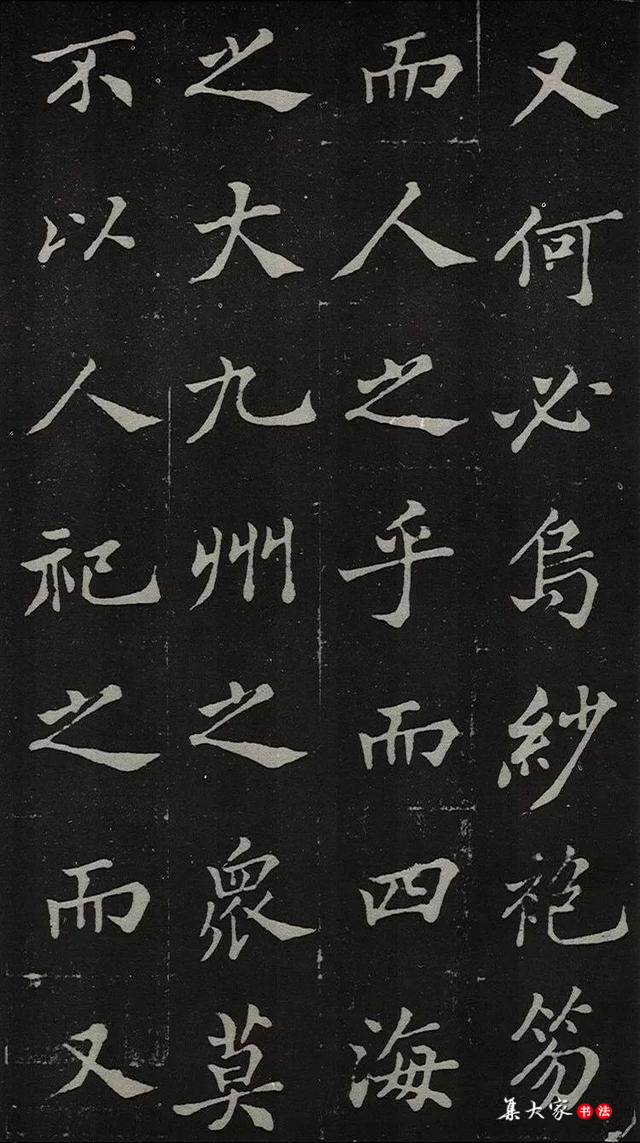 又何必烏紗袍笏
而人之乎而四海
之大九州之眾莫
不以人祀之而又
集大家书法